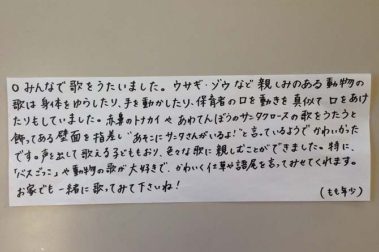 ○みんなで歌をうたいました。ウサギ・ゾウなど親しみのある動物の
歌は身体をゆらしたり、手を動かしたり、保育者の口を動きを真似て口をあけ
たりもしていました。赤鼻のトナカイやあわてんぼうのサンタクロースの歌をうたうと
飾ってある壁面を指差し"あそこにサンタさんがいるよ!"と言っているようでかわいかった
です。声を出して歌える子どももおり、色々な歌に親しむことができました。特に、
「バスごっこ」や動物の歌が大好きで、かわいく仕草や語尾を言ってみせてくれます。
お家でも一緒に歌ってみて下さいね!
(もも年少)